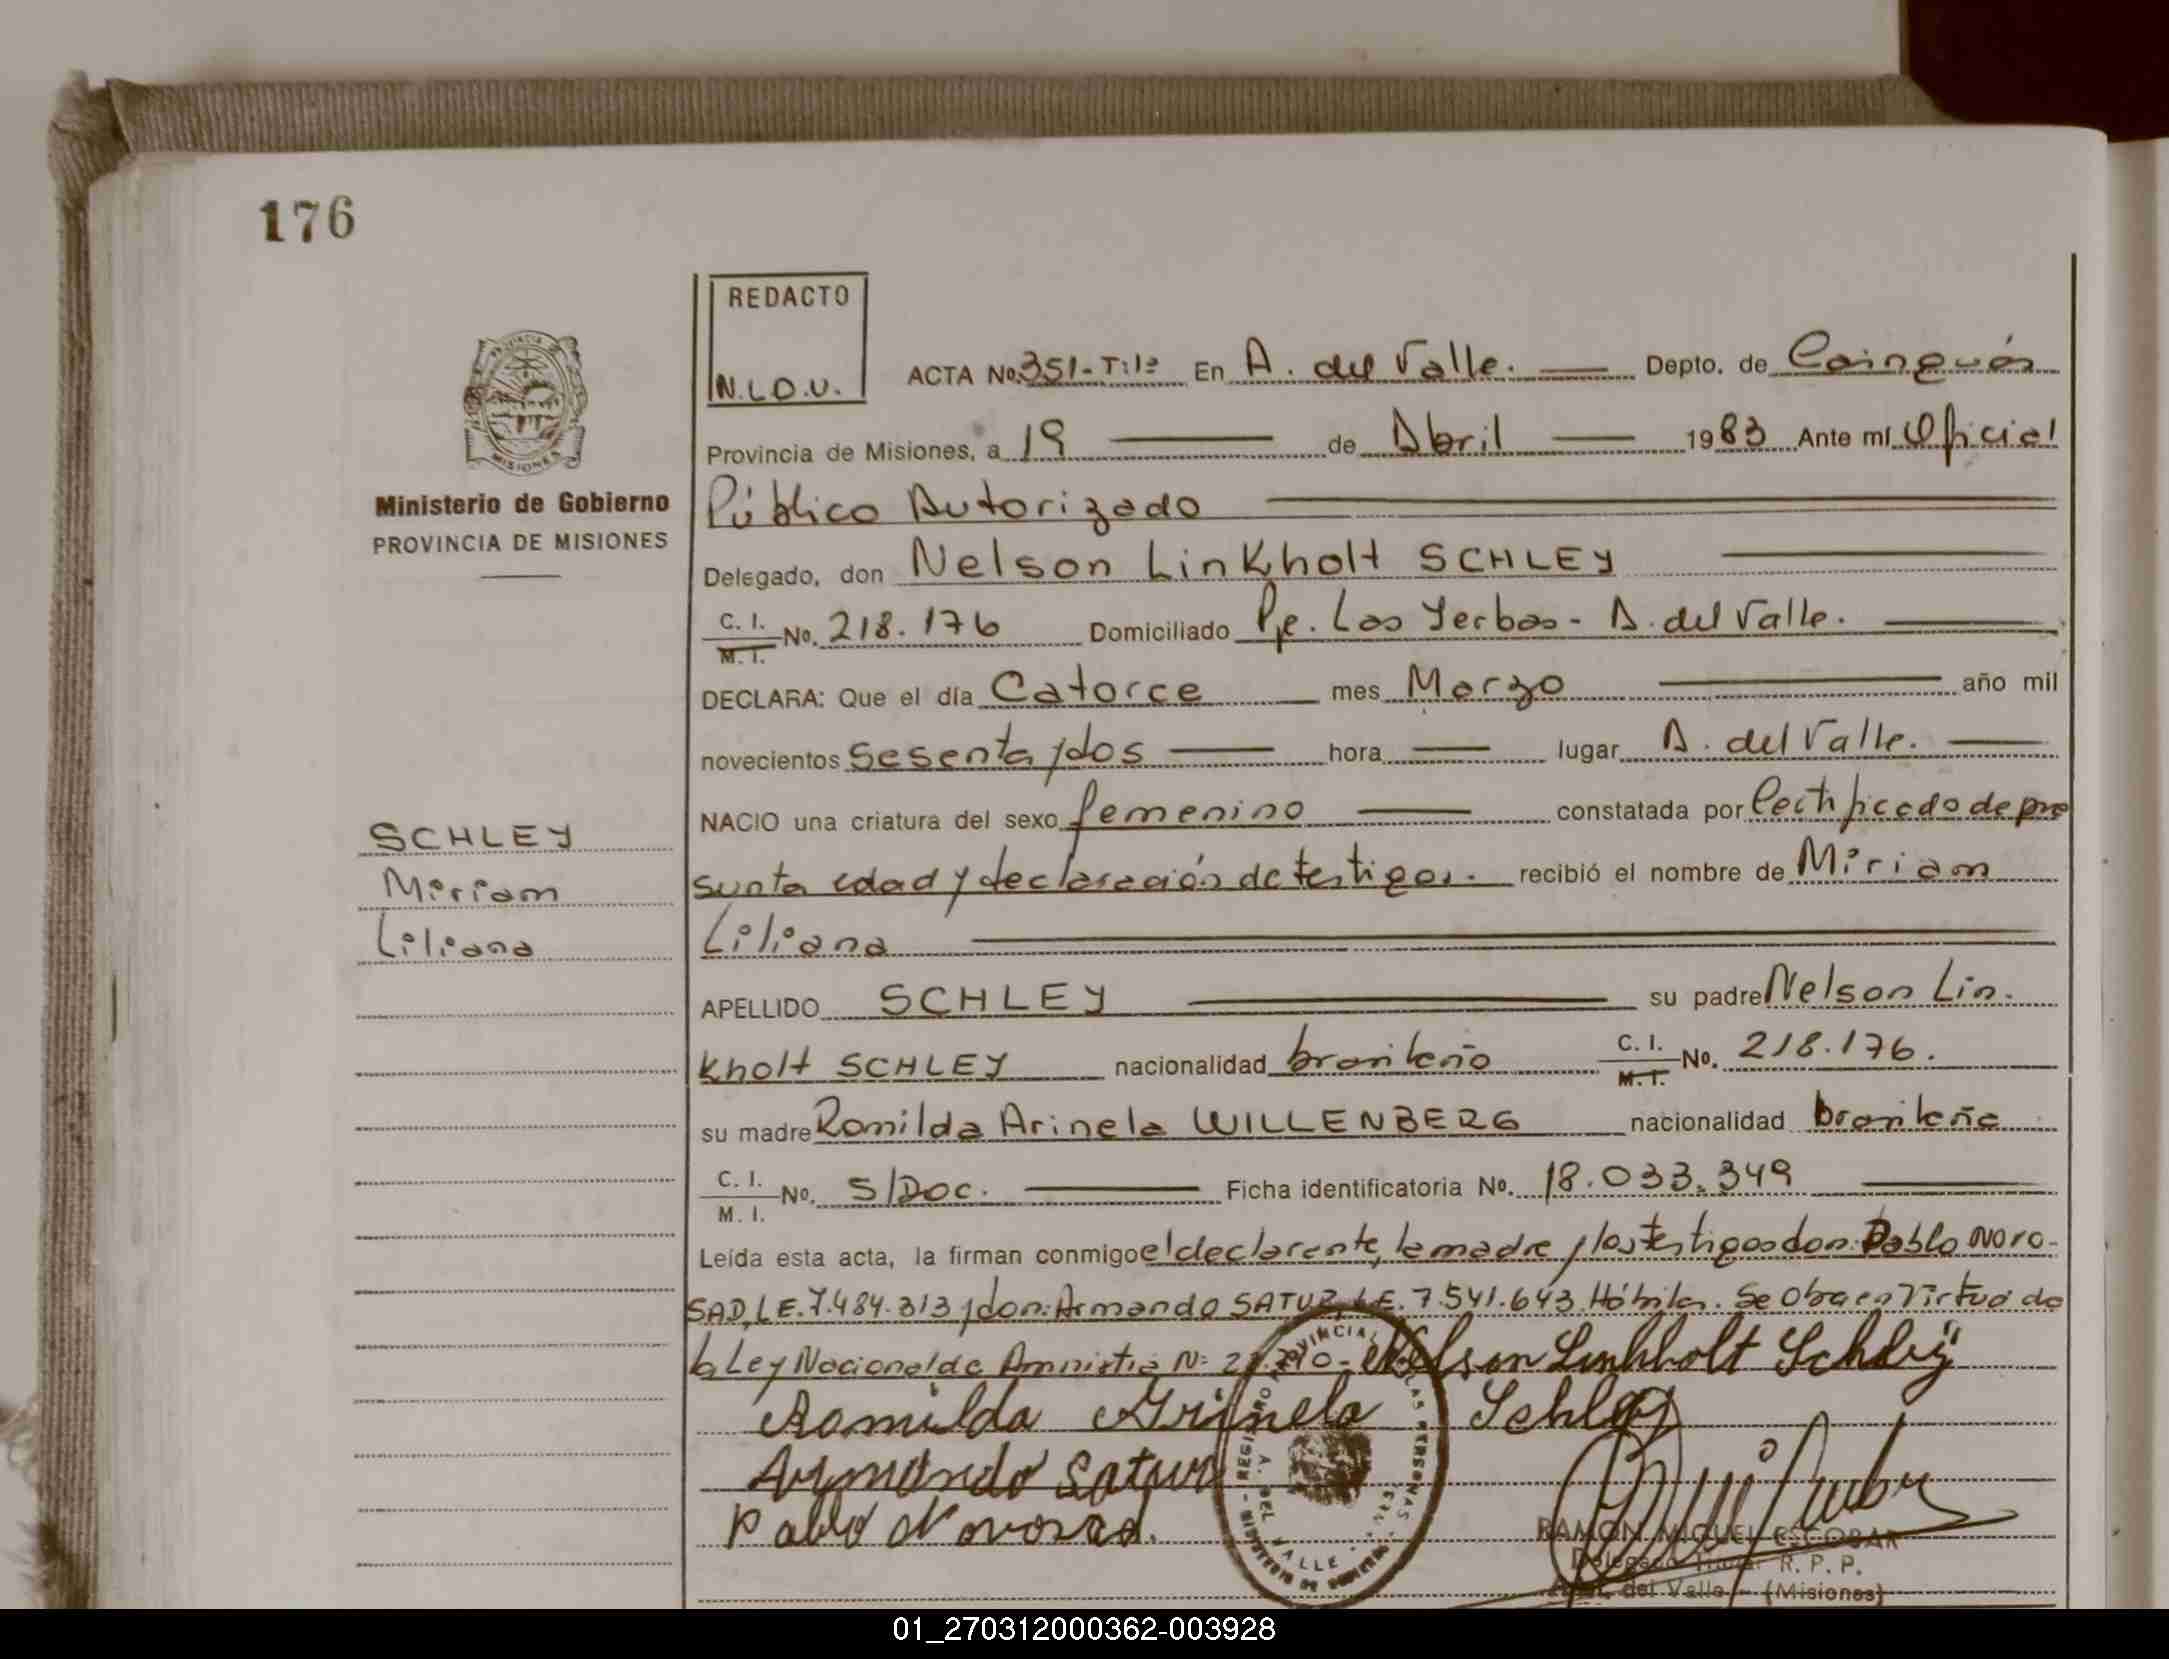 176
REDACTO
N.L.D.V.
ACTA No. 351-T:1º En A. del Valle. Depto. de Cainguás
Provincia de Misiones, a 19 de Abril 1983 Ante mí Oficial
Público Autorizado
Delegado, don Nelson Linkholt SCHLEY
C. I. M. I. No. 218.176 Domiciliado Pje. Las Yerbas - A. del Valle.
DECLARA: Que el día Catorce mes Marzo año mil
novecientos sesenta y dos hora lugar A. del Valle.
NACIO una criatura del sexo femenino constatada por Certificado de pre
sunta edad y declaración de testigos. recibió el nombre de Miriam
Liliana
APELLIDO SCHLEY su padre Nelson Lin.
Kholt SCHLEY nacionalidad brasileño C. I. M. I. No. 218.176.
su madre Romilda Arinela WILLENBERG nacionalidad brasileña
C. I. M. I. No. S/Doc. Ficha identificatoria No. 18.033.349
Leída esta acta, la firman conmigo el declarante, la madre y los testigos don: Pablo NOVO-
SAD, LE. 7.484.313 y don: Armando SATUR, LE. 7.541.643. Hábiles. Se Obra en Virtud de
la Ley Nacional de Amnistía Nº Nelson Linkholt Schley
Romilda Arinela Schley
Armando Satur
Pablo Novosad.
RAMON MIGUEL ESCOBAR
Delegado Titular R. P. P.
del Valle - (Misiones)
REGISTRO PROVINCIAL PERSONAS
A. DEL VALLE
PROVINCIA
MISIONES
Ministerio de Gobierno
PROVINCIA DE MISIONES
SCHLEY
Miriam
Liliana
01_270312000362-003928